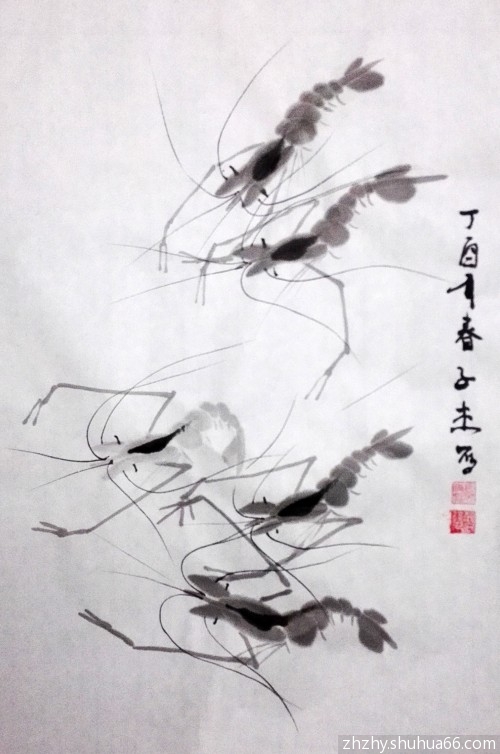 丁酉年春子未写
zhzhy.shuhua66.com